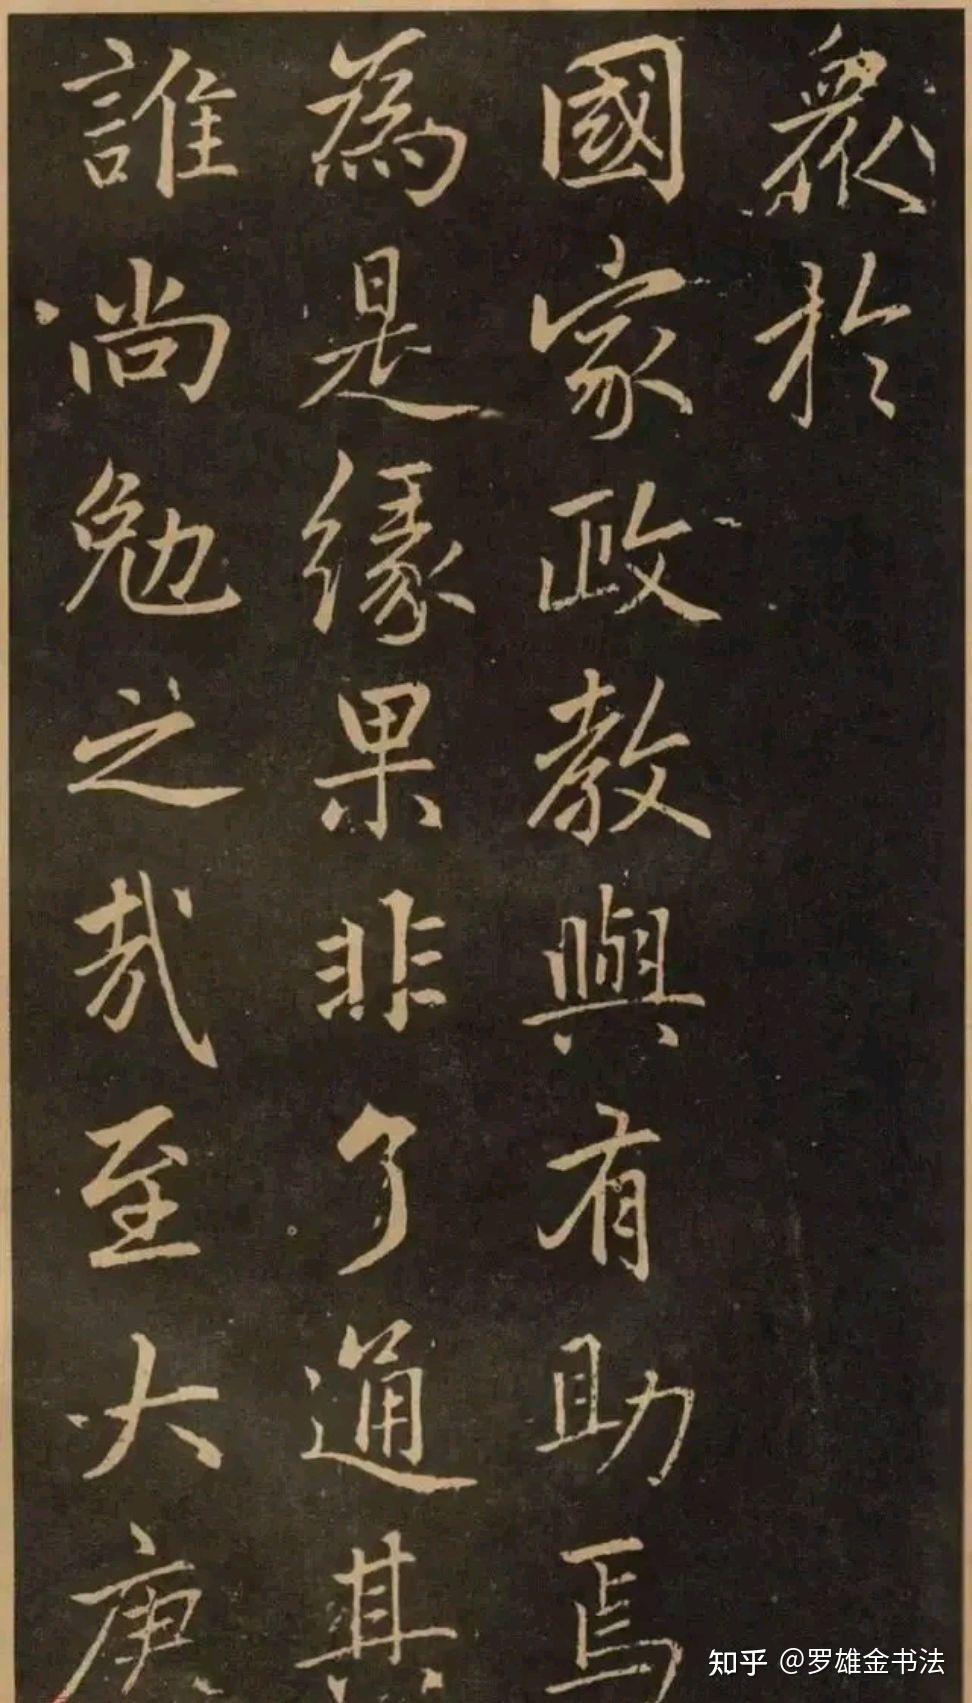 眾於
國家政教與有助焉
為是緣果非了通其
誰尚勉之哉至大庚
知乎 @罗雄金书法